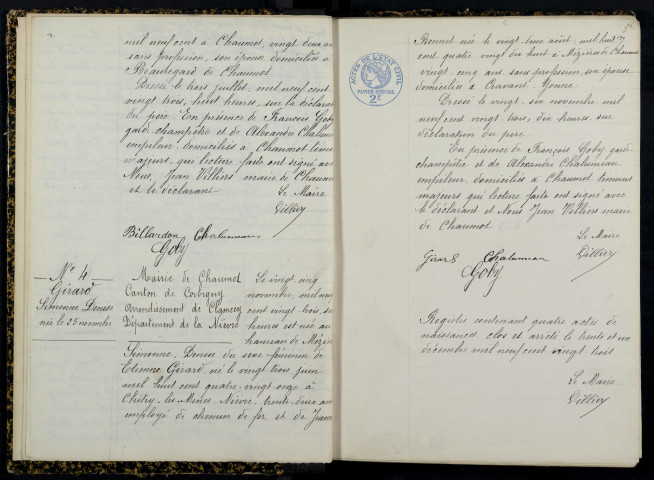 mil neuf cent à Chaumot, vingt deux an
sans profession, son épouse domiciliés à
Beauregard de Chaumot.
Dressé le trois juillet, mil neuf cent
vingt trois, huit heures, sur la déclara
du père. En présence de François Goby
garde champêtre et de Alexandre Chalumeau
employeur, domiciliés à Chaumot témoi
majeurs, qui lecture faite ont signé avec
Nous, Jean Villiers maire de Chaumot
et le déclarant. Le Maire
Villiers
Billardon Chalumeau
Goby
N° 4
Girard
Simonne Denise
née le 25 novembre
Mairie de Chaumot
Canton de Corbigny
Arrondissement de Clamecy
Département de la Nièvre
Le vingt cinq
novembre, mil neuf
cent vingt trois, six
heures est née au
hameau de Mézières
Simonne, Denise du sexe féminin de
Etienne Girard né le vingt trois juin
mil huit cent quatre vingt onze à
Chitry-les-Mines, Nièvre, trente deux ans
employé de chemin de fer et de Jeanne
ACTES DE L'ÉTAT CIVIL
PAPIER SPÉCIAL
2F
Bonnet née le vingt deux août, mil huit
cent quatre vingt dix huit à Mézières de Chaumot
vingt cinq ans, sans profession, son épouse
domiciliés à Cravant Yonne
Dressé le vingt-six novembre mil
neuf cent vingt trois, dix heures, sur
déclaration du père.
En présence de François Goby garde
champêtre et de Alexandre Chalumeau
employeur, domiciliés à Chaumot témoins
majeurs qui lecture faite ont signé avec
le déclarant et Nous Jean Villiers maire
de Chaumot.
Le Maire
Villiers
Girard Chalumeau
Goby
Registre contenant quatre actes de
naissances, clos et arrêté le trente et un
décembre mil neuf cent vingt trois
Le Maire
Villiers